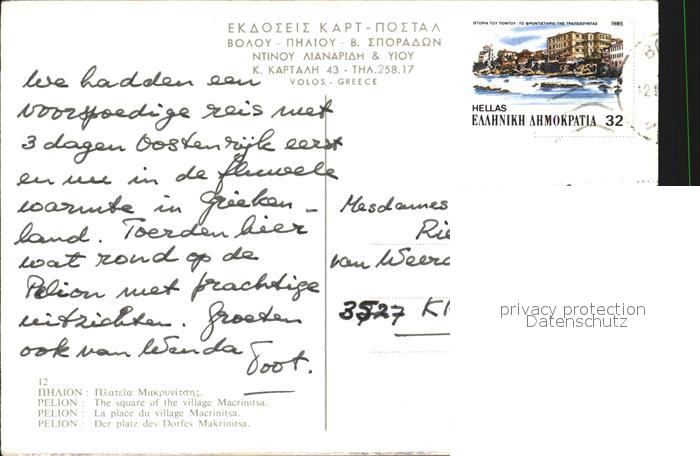 ΕΚΔΟΣΕΙΣ ΚΑΡΤ-ΠΟΣΤΑΛ
ΒΟΛΟΥ-ΠΗΛΙΟΥ-Β. ΣΠΟΡΑΔΩΝ
ΝΤΙΝΟΥ ΛΙΑΝΑΡΙΔΗ & ΥΙΟΥ
Κ. ΚΑΡΤΑΛΗ 43 - ΤΗΛ.258.17
VOLOS - GREECE
ΙΣΤΟΡΙΑ ΤΟΥ ΠΟΝΤΟΥ · ΤΟ ΦΡΟΝΤΙΣΤΗΡΙΟ ΤΗΣ ΤΡΑΠΕΖΟΥΝΤΑΣ 1985
HELLAS
ΕΛΛΗΝΙΚΗ ΔΗΜΟΚΡΑΤΙΑ 32
We hadden een
voorspoedige reis met
3 dagen Oostenrijk eerst
en nu in de fluwele
warmte in Grieken-
land. Toerden hier
wat rond op de
Pelion met prachtige
uitzichten. Groeten
ook van Wenda
Toot.
Mesdames
Rie
van Weerd
3527
privacy protection
Datenschutz
12
ΠΗΛΙΟΝ : Πλατεῖα Μακρυνίτσης.
PELION : The square of the village Macrinitsa.
PELION : La place du village Macrinitsa.
PELION : Der platz des Dorfes Makrinitsa.